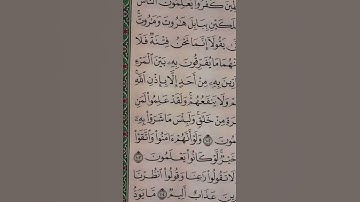 طِينَ كَفَرُوا۟ يُعَلِّمُونَ ٱلنَّاسَ
لَكَيْنِ بِبَابِلَ هَـٰرُوتَ وَمَـٰرُوتَ
يَقُولَآ إِنَّمَا نَحْنُ فِتْنَةٌ فَلَا
هُمَا مَا يُفَرِّقُونَ بِهِۦ بَيْنَ ٱلْمَرْءِ
آرِّينَ بِهِۦ مِنْ أَحَدٍ إِلَّا بِإِذْنِ ٱللَّهِ
مْ وَلَا يَنفَعُهُمْ وَلَقَدْ عَلِمُوا۟ لَمَنِ
رَةِ مِنْ خَلَـٰقٍ وَلَبِئْسَ مَا شَرَوْا۟ بِهِۦٓ
مُونَ ١٠٢ وَلَوْ أَنَّهُمْ ءَامَنُوا۟ وَٱتَّقَوْا۟
خَيْرٌ لَّوْ كَانُوا۟ يَعْلَمُونَ ١٠٣
لَا تَقُولُوا۟ رَٰعِنَا وَقُولُوا۟ ٱنظُرْنَا
رِينَ عَذَابٌ أَلِيمٌ ١٠٤ مَّا يَوَدُّ